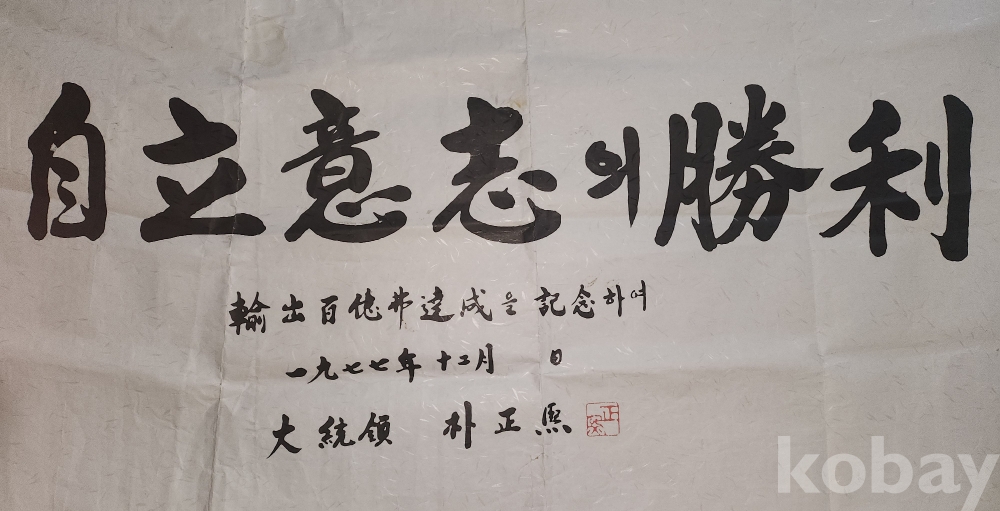 自立意志의勝利
輸出百億弗達成을 記念하여
一九七七年 十二月 日
大統領 朴正熙
正熙
kobay